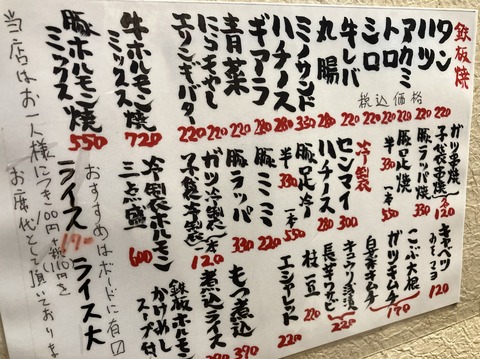 鉄板焼
タン 220
ハツ 220
アカミ 220
トロ 220
シロ 220
牛レバ 220
丸腸 330
ミノサンド 280
ハチノス 280
ギアラ 220
青菜 220
にらもやし 220
エリンギバター 220
牛ホルモン焼ミックス 720
豚ホルモン焼ミックス 550
税込価格
ガツ串焼
子袋串焼 各120
豚ラッパ焼 330
豚足焼 一本 550
半 330
冷製
センマイ 300
ハチノス 280
豚足冷 一本 550
半 330
豚ミミ 220
豚ラッパ 330
ガツ冷製
子袋冷製 一本120
冷製ホルモン三点盛 600
おすすめはボードに有り
ライス 170
ライス大
キャベツ
おかわり 120
こぶ大根
ガツキムチ
白菜キムチ 170
キュウリ浅漬
長芋ワサビ 220
枝豆 220
エシャレット 220
もつ煮込 390
煮込ライス
鉄板ホルモンかけめし
スープ付
当店はお一人様につき100円+税110円を
お席代として頂いております